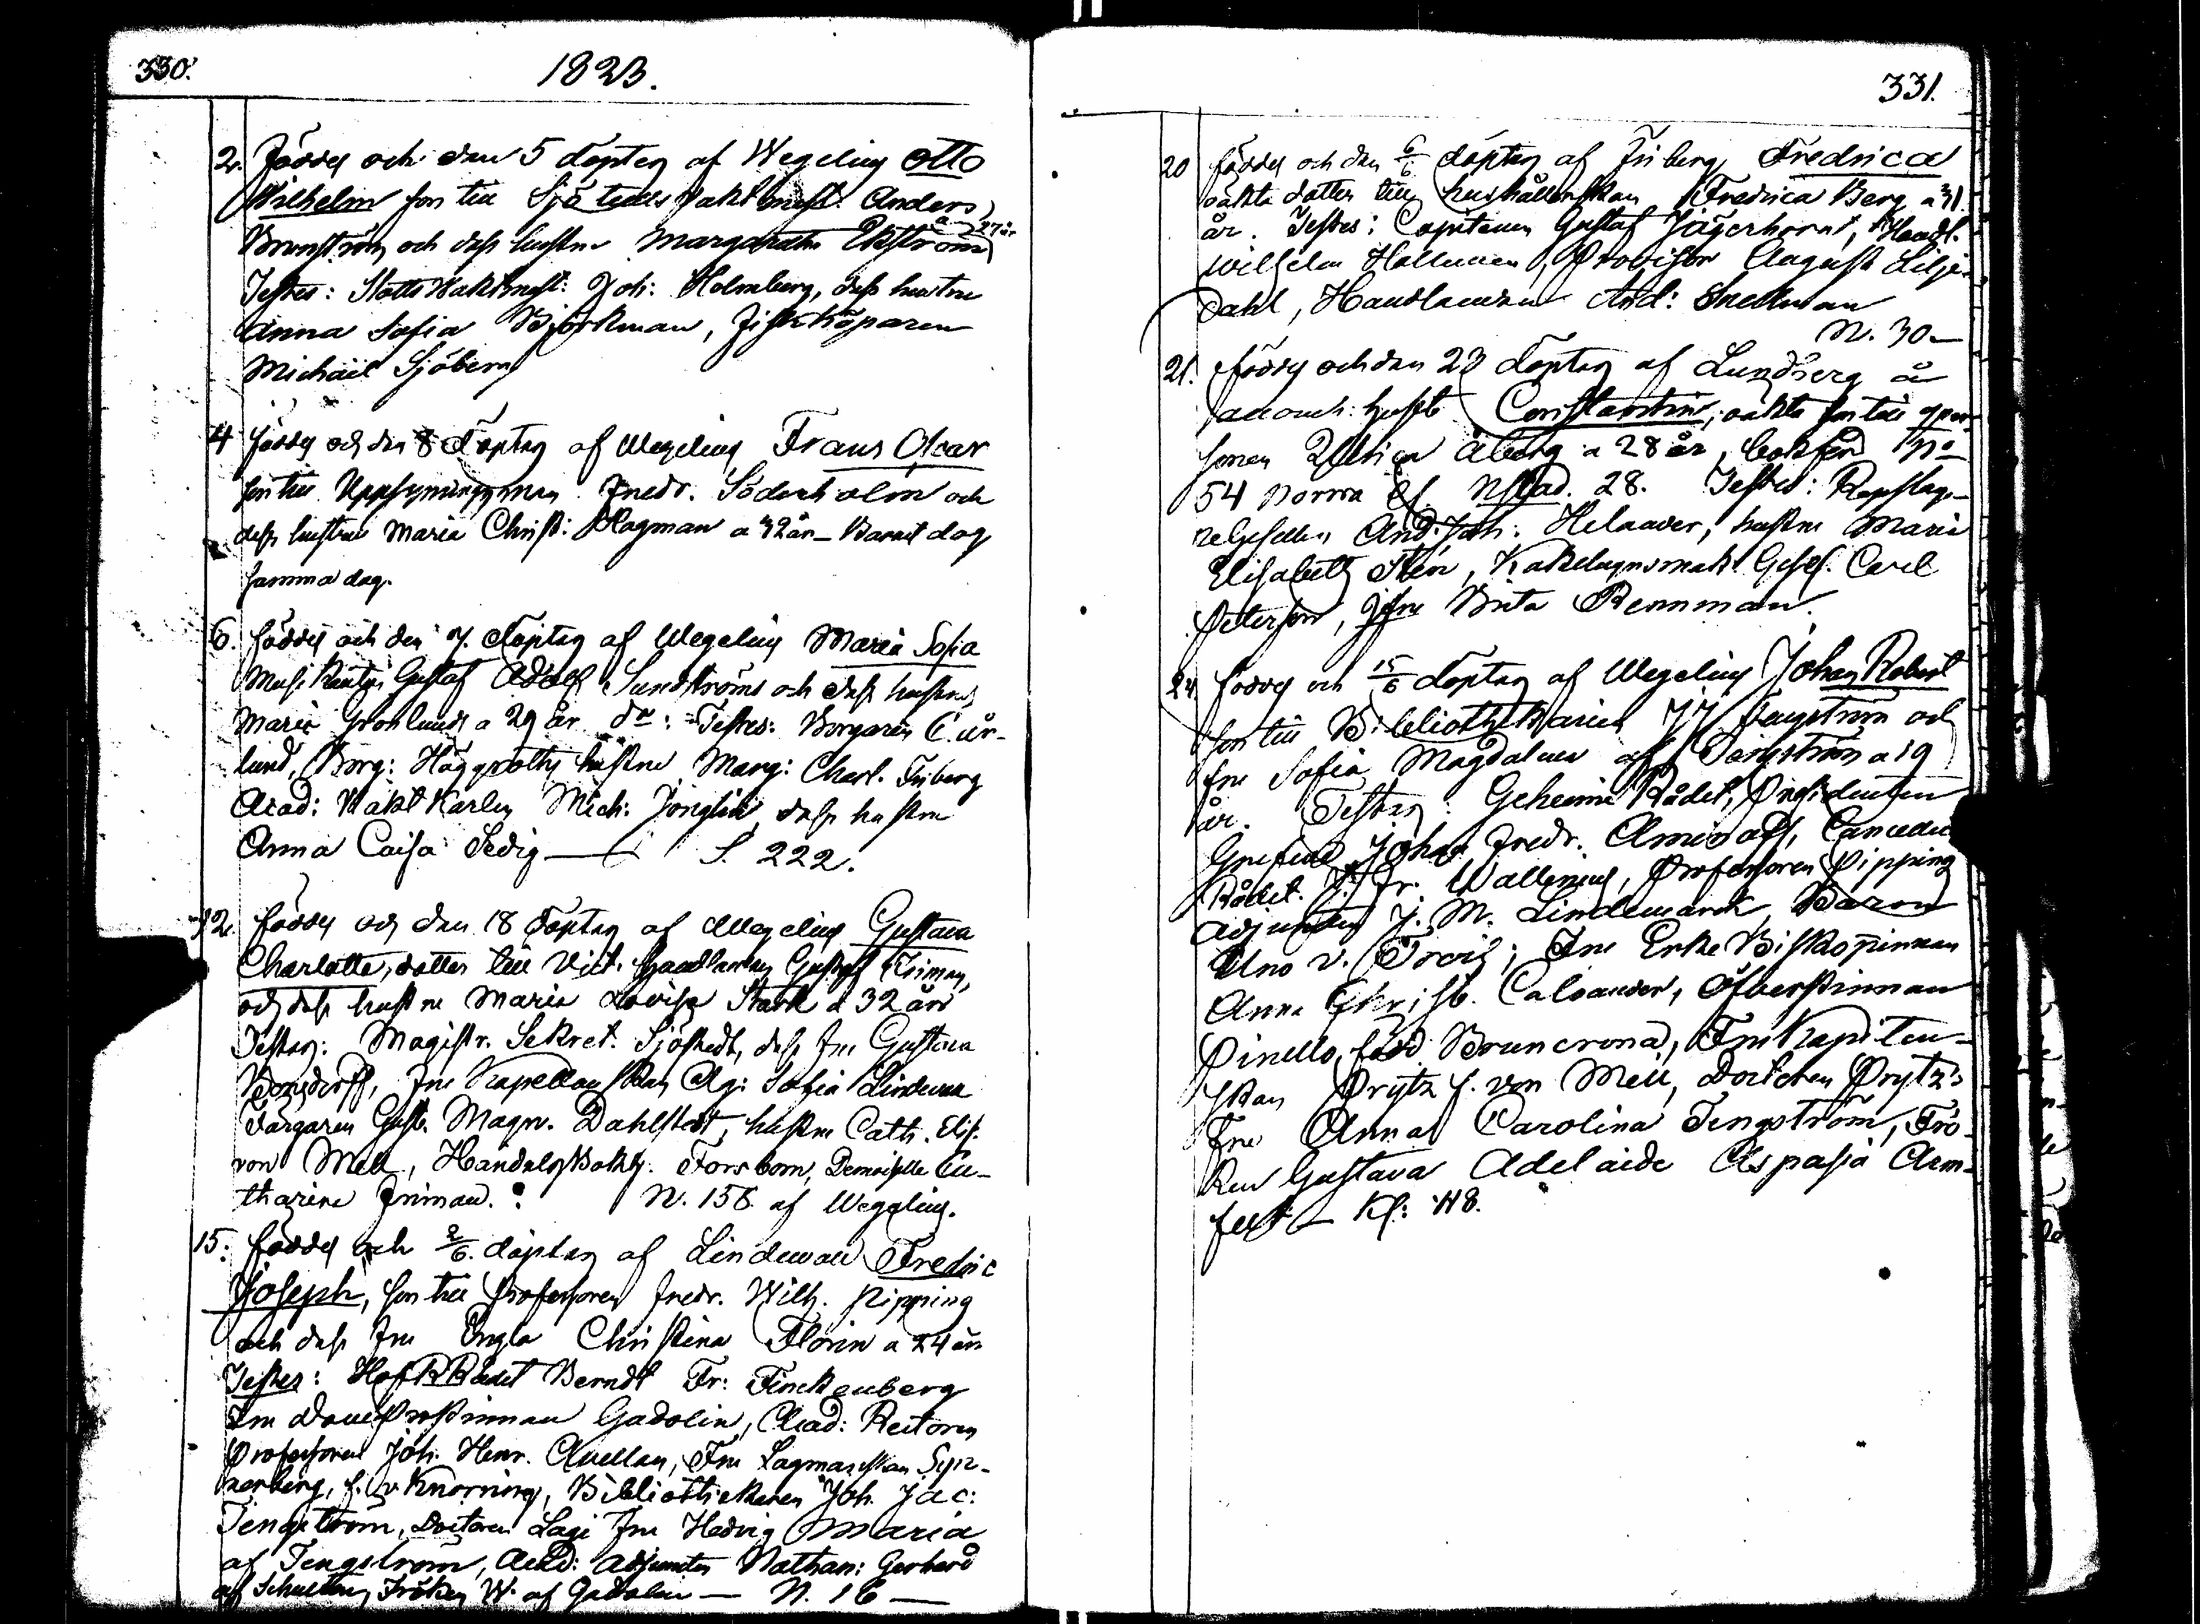 330.
1823.
2. Föddes och den 5 döptes af Wegelius Otto
Wilhelm son till Sjötulls Vaktmst. Anders
Brunström och dess hustru Margaretha Ekström a 27 år
Testes: Slotts Waktmst: Joh: Holmberg, dess hustru
Anna Sofia Björkman, Fiskköparen
Michäil Sjöberg
4 föddes och den 8 döptes af Wegelius Frans Oscar
son till Uppsyningsman Fredr. Söderholm och
dess hustru Maria Christ: Hagman a 32 år – Barnet dog
samma dag.
6. föddes och den 7. döptes af Wegelius Maria Sofia
Musikanten Gustaf Adolf Sundströms och dess hustrus
Maria Grönlunds a 29 år dr: Testes: Borgaren C.
lund, Borg: Häggroths hustru Marg: Charl. Friberg
Acad: Vakt Karlen Mich: Jonglin, dess hustru
Anna Caisa Sedig — S. 222.
12. föddes och den 18 döptes af Wegelius Gustava
Charlotta, dotter till Vict. Handlanden Gustaf Friman,
och dess hustru Maria Lovisa Stark a 32 år
Testes: Magistr. Sekret. Sjöstedt, dess Fru Gustava
Bonsdorff, Fru Kapellanskan Ag: Sofia Lindewall
Färgaren Gust. Magn. Dahlstedt, hustru Cath. Elis.
von Mell, Handels Bokh: Forsbom, Demoiselle Ca-
tharina Friman. N. 156 af Wegelius.
15. föddes och 2/6. döptes af Lindewall Fredric
Joseph, son till Professoren Fredr. Wilh. Pipping
och dess Fru Engla Christina Florin a 24 år
Testes: Hof R Rådet Berndt Fr: Finckenberg
Fru DomProstinnan Gadolin, Acad: Rectoren
Professoren Joh. Henr. Avellan, Fru Lagmanskan Syn-
nerberg, f. v. Knorring, Bibliothekarien Joh. Jac:
Tengström, Doctoren Lagi Fru Hedvig Maria
af Tengström, Acad: Adjuncten Nathan: Gerhard
af Schultén, Fröken W. af Gadolin — N. 16 —
331.
20 föddes och den 6/6 döptes af Friberg Fredrica
oäkta dotter till hushållerskan Fredrica Berg a 31
år. Testes: Capitainen Gustaf Jägerhorn, Handl.
Wilhelm Hallman, Provisor August Lilje-
dahl, Handlanden And: Snellman
N. 30 –
21. föddes och den 23 döptes af Lundberg å
accouch: huset Constantin, oäkta son till qvin
sonen Ulrica Åberg a 28 år, bokförd No
54 Norra Nstad. 28. Testes: Repslaga-
re Gesellen And: Joh: Helander, hustru Maria
Elisabeth Sten, Kakelugnsmak. Gesel. Carl
Peterson, Jfru Brita Remman.
24. föddes och 15/6 döptes af Wegelius Johan Robert
son till Bibliothekarien J J Tengström och
Fru Sofia Magdalena af Tengström a 19
år. Testes: Geheime Rådet, Presidenten
Grefve Johan Fredr. Aminoff, Cancellie
Rådet. J. Fr. Wallenius, Professoren Pipping
Adjuncten J. M. Lindemarck, Baron
Uno v. Troil; Fru Erke Biskopinnan
Anna Christ. Caloander, Öfverstinnan
Pinello, född Bruncrona, Fru Kapiten-
skan Prytz f. von Mell, Doctoren Prytz's
Fru Anna Carolina Tengström, Frö-
ken Gustava Adelaide Aspasia Arm-
felt – Kl: 48.